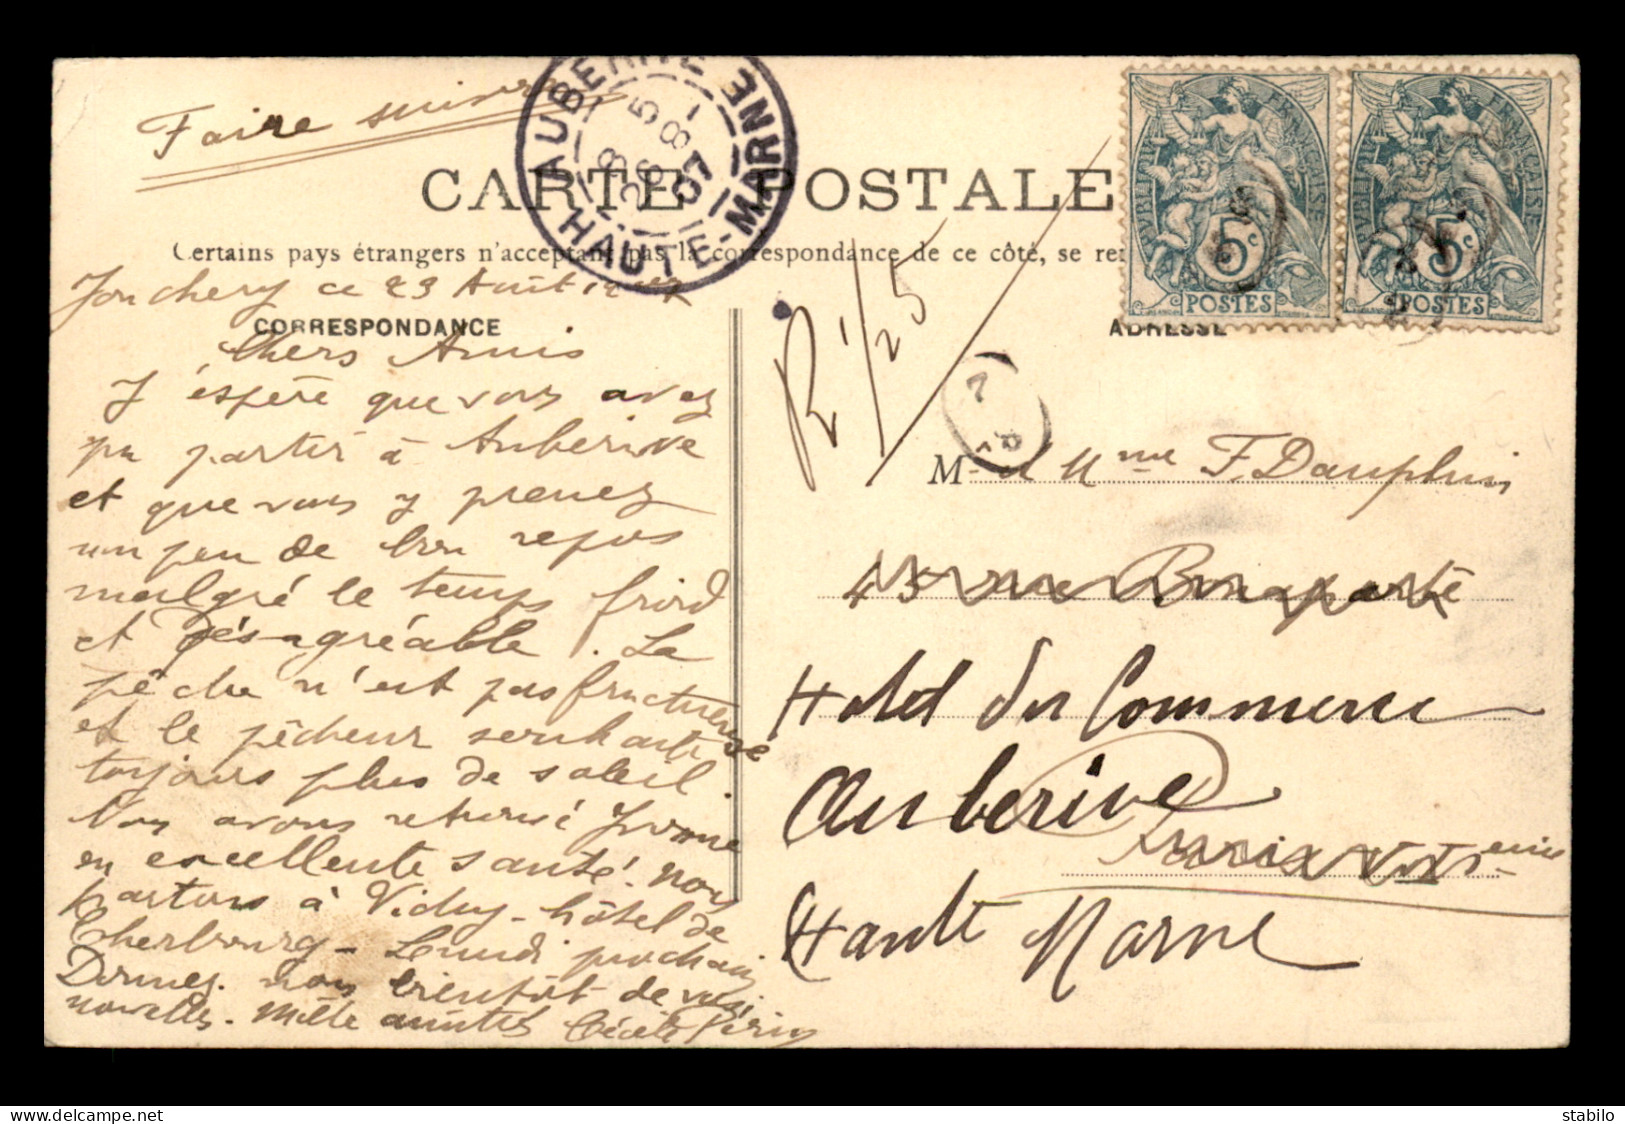 Faire suivre
AUBERIVE
HAUTE-MARNE
8 5
26 8
07
CARTE POSTALE
Certains pays étrangers n'acceptant pas la correspondance de ce côté, se re
Jonchery ce 23 Août 1907
CORRESPONDANCE
Chers Amis
J'éspère que vous avez
pu partir à Auberive
et que vous y prenez
un peu de bon repos
malgré le temps froid
et désagréable. La
pêche n'est pas fructueuse
et le pêcheur souhaite
toujours plus de soleil.
Nous avons retrouvé Yvonne
en excellente santé. Nous
partons à Vichy - hôtel de
Cherbourg - Lundi prochain
Donnez nous bientôt de vos
nouvelles. Mille amitiés Cécile
RÉPUBLIQUE FRANÇAISE
5c
POSTES
RÉPUBLIQUE FRANÇAISE
5c
POSTES
ADRESSE
R 1/25
M- et Mme F. Dauphin
45 rue Bonaparte
Hotel du Commerce
Auberive
Paris VIème
Haute Marne
stabilo